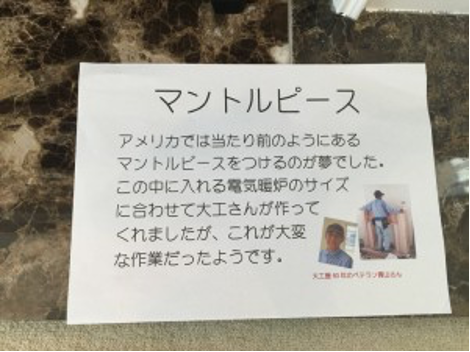 マントルピース
アメリカでは当たり前のようにある
マントルピースをつけるのが夢でした。
この中に入れる電気暖炉のサイズ
に合わせて大工さんが作って
くれましたが、これが大変
な作業だったようです。